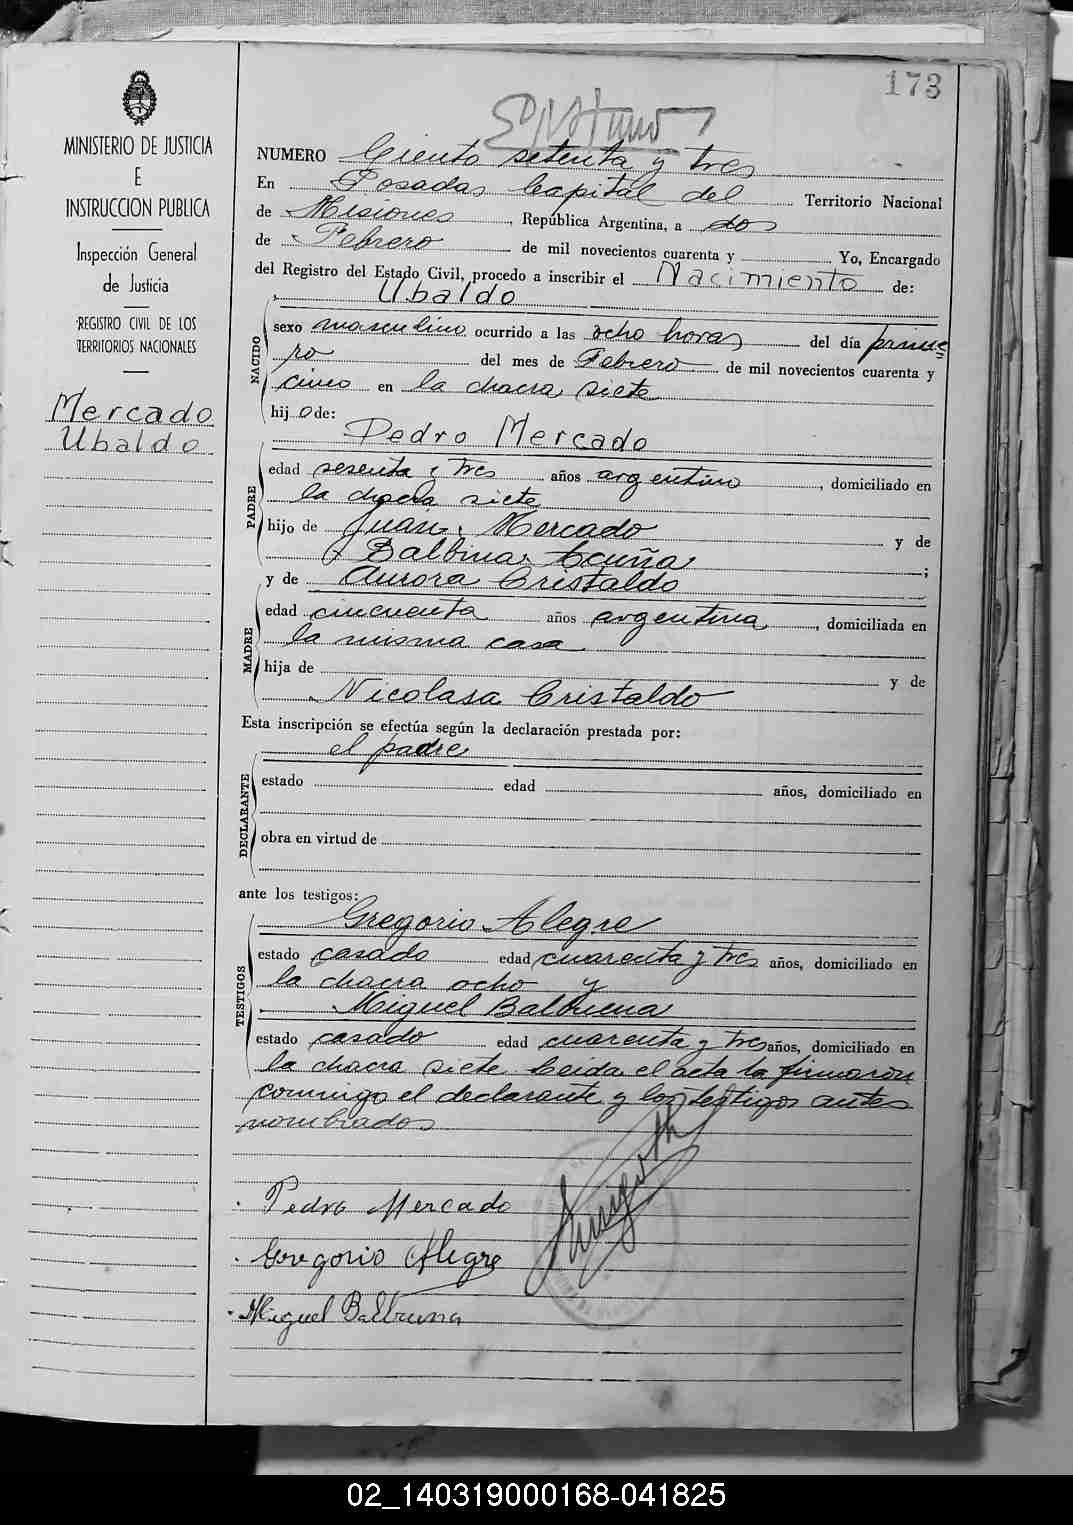 173
NUMERO Ciento setenta y tres
En Posadas Capital del Territorio Nacional
de Misiones, República Argentina, a dos
de Febrero de mil novecientos cuarenta y Yo, Encargado
del Registro del Estado Civil, procedo a inscribir el Nacimiento de:
Ubaldo
sexo masculino ocurrido a las ocho horas del día prime
ro del mes de Febrero de mil novecientos cuarenta y
cinco en la chacra siete
hijo de:
Pedro Mercado
edad sesenta y tres años argentino, domiciliado en
la chacra siete
hijo de Juan Mercado y de
Balbina Acuña;
y de Aurora Cristaldo
edad cincuenta años argentina, domiciliada en
la misma casa
hija de y de
Nicolasa Cristaldo
Esta inscripción se efectúa según la declaración prestada por:
el padre
estado edad años, domiciliado en
obra en virtud de
ante los testigos:
Gregorio Alegre
estado casado edad cuarenta y tres años, domiciliado en
la chacra ocho y
Miguel Balbuena
estado casado edad cuarenta y tres años, domiciliado en
la chacra siete Leida el acta la firmaron
conmigo el declarante y los testigos antes
nombrados
Pedro Mercado
Gregorio Alegre
Miguel Balbuena
NACIDO
PADRE
MADRE
DECLARANTE
TESTIGOS
MINISTERIO DE JUSTICIA
E
INSTRUCCION PUBLICA
Inspección General
de Justicia
REGISTRO CIVIL DE LOS
TERRITORIOS NACIONALES
Mercado
Ubaldo
02_140319000168-041825